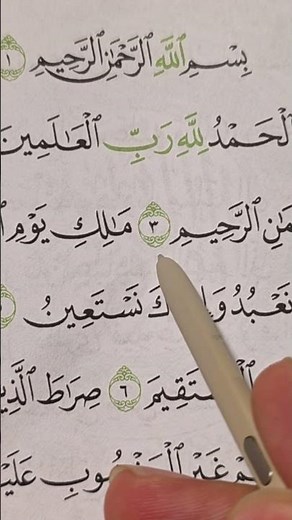 بِسْمِ ٱللَّهِ ٱلرَّحْمَٰنِ ٱلرَّحِيمِ ١
ٱلْحَمْدُ لِلَّهِ رَبِّ ٱلْعَٰلَمِينَ
ٱلرَّحِيمِ ٣ مَٰلِكِ يَوْمِ
نَعْبُدُ نَسْتَعِينُ
ٱلْمُسْتَقِيمَ ٦ صِرَٰطَ ٱلَّذِينَ
غَيْرِ ٱلْمَغْضُوبِ